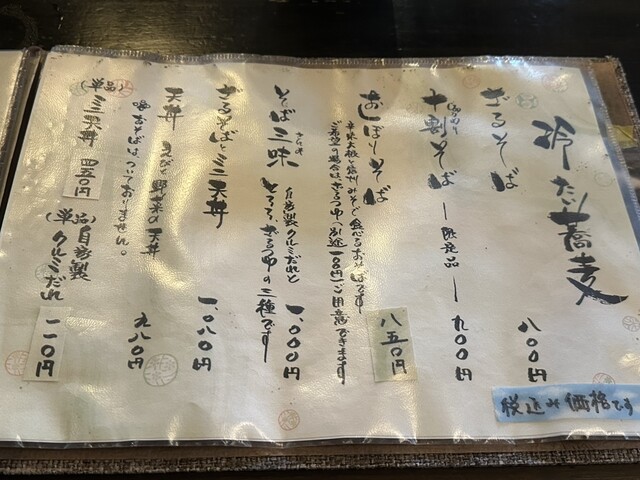 冷たい蕎麦
ざるそば 八〇〇円
十割そば ―限定品― 九〇〇円
おしぼりそば 八五〇円
辛味大根と信州みそで食べるおそばです
ご希望の場合は、ざるつゆ、別途一〇〇円でご用意できます
そば三味 一、〇〇〇円
自家製クルミだれと
とろろ、ざるつゆの三種です
ざるそばとミニ天丼 一、〇八〇円
天丼 九八〇円
えびと野菜の天丼
※おそばは、ついておりません。
(単品)
ミニ天丼 四五〇円
(単品)自家製
クルミだれ 一一〇円
税込み価格です